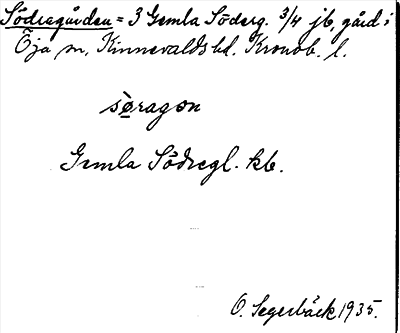 Södragården = 3 Gemla Söderg. 3/4 jb, gård i
Öja sn, Kinnevalds hd. Kronob. l.
søragon
Gemla Södregl. kb.
O. Segerbäck 1935.